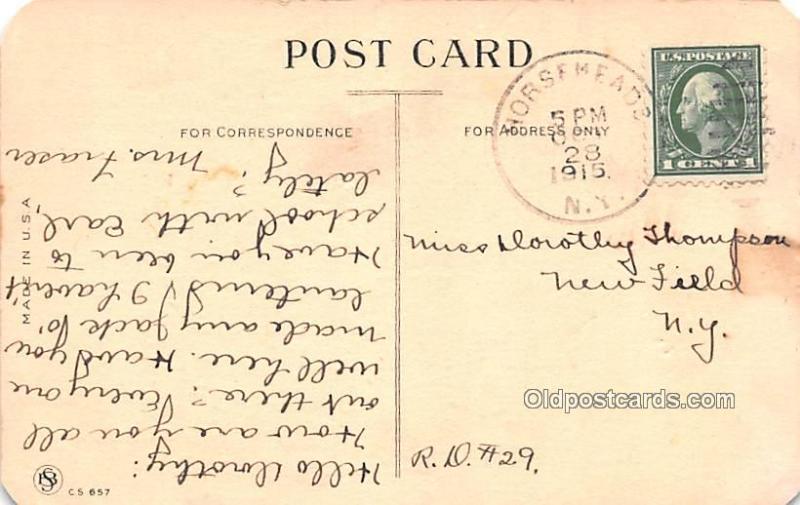 POST CARD
FOR CORRESPONDENCE
FOR ADDRESS ONLY
HORSEHEADS
5 PM
28
1915.
N.Y.
U.S. POSTAGE
1 CENTS 1
Miss Dorothy Thompson
New Field
N.Y.
R.D. #29.
Hello Dorothy:
How are you all
out there? Every one
well here. Have you
made any Jack O'
lanterns? I haven't
Have you been to
school with Earl,
lately? Mrs. Fraser
MADE IN U.S.A
C.S 657
Oldpostcards.com